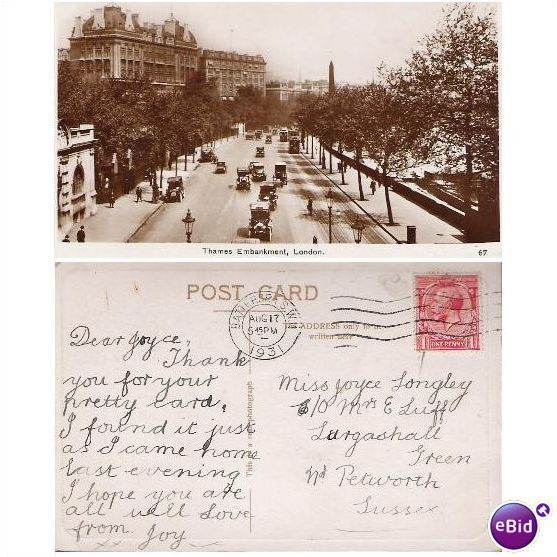 Thames Embankment, London.
67
POST CARD
AUG 17
5.45 PM
1931
ADDRESS only to be
written here
ONE PENNY
This is a real photograph
Dear Joyce,
Thank
you for your
pretty card,
I found it just
as I came home
last evening
I hope you are
all well Love
from. Joy
Miss Joyce Longley
c/o Mrs E Luff
Lurgashall
Green
Nd Petworth
Sussex
eBid